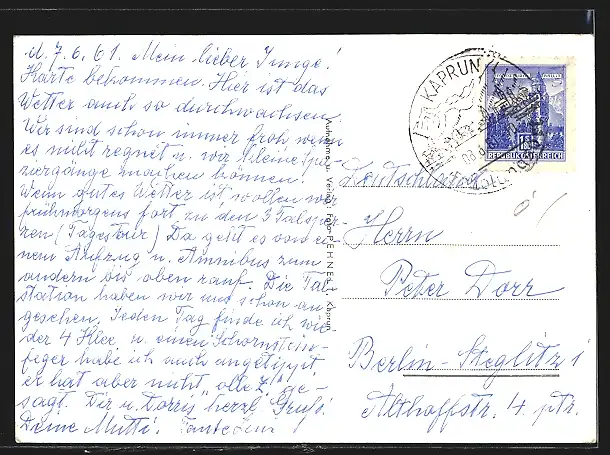 d. 7.6.61. Mein lieber Junge!
Karte bekommen. Hier ist das
Wetter auch so durchwachsen.
Wir sind schon immer froh, wenn
es nicht regnet u. wir kleine Spa-
ziergänge machen können.
Wenn gutes Wetter ist wollen wir
frühmorgens fort zu den 3 Talsper-
ren (Tagestour) Da geht es von ei-
nem Aufzug u. Omnibus zum
andern bis oben rauf. Die Tal-
station haben wir uns schon an-
gesehen. Jeden Tag finde ich wie-
der 4 Klee. u. einen Schornstein-
feger habe ich auch angetippt,
er hat aber nicht "olle Z." ge-
sagt. Dir u. Dorris herzl. Gruß!
Deine Mutti. Tante Leni
Aufnahme u. Verlag: Foto PEHNELT, Kaprun
KAPRUN
REPUBLIK ÖSTERREICH
Deutschland
Herrn
Peter Dorr
Berlin-Steglitz 1
Althoffstr. 4 ptr.